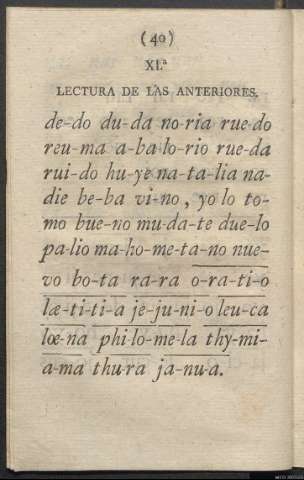 (40)
XI.ª
LECTURA DE LAS ANTERIORES.
de-do du-da no-ria rue-do
reu-ma a-ba-lo-rio rue-da
rui-do hu-ye na-ta-lia na-
die be-ba vi-no, yo lo to-
mo bue-no mu-da-te due-lo
pa-lio ma-ho-me-ta-no nue-
vo bo-ta ra-ra o-ra-ti-o
læ-ti-ti-a je-ju-ni-o leu-ca
lœ-na phi-lo-me-la thy-mi-
a-ma thu-ra ja-nu-a.